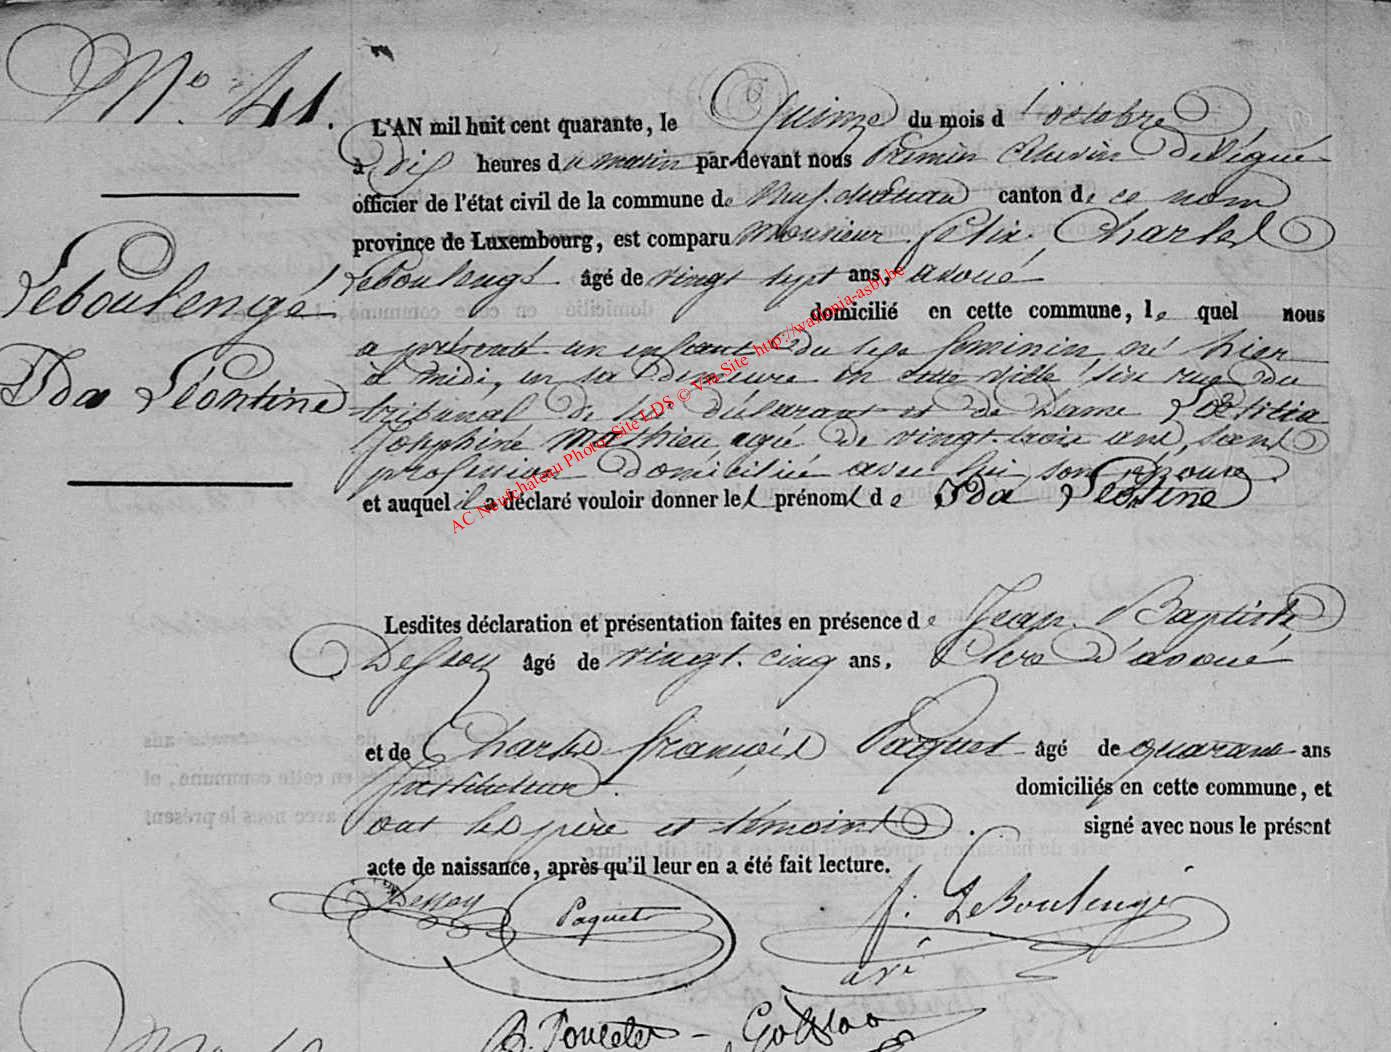 No 41.
L'AN mil huit cent quarante, le Quinze du mois d'octobre
à dix heures du matin par-devant nous Premier Echevin Délégué
officier de l'état civil de la commune de Neufchateau canton de ce nom
province de Luxembourg, est comparu Monsieur felix Charles
Leboulengé
Leboulengé âgé de vingt sept ans, avoué
domicilié en cette commune, le quel nous
a présenté un enfant du sexe féminin, né hier
à midi, en sa demeure en cette ville, sise rue du
Ida Léontine
tribunal de lui déclarant et de Dame Laetitia
Josephine Mathieu, agée de vingt trois ans, sans
profession domiciliée avec lui, son épouse
et auquel il a déclaré vouloir donner les prénoms de Ida Léontine
AC Neufchateau Photo: Site LDS © Via Site http://wallonia-asbl.be
Lesdites déclaration et présentation faites en présence de Jean Baptiste
Dessoy âgé de vingt-cinq ans, Clerc d'avoué
et de Charles françois Paquet âgé de quarante ans
Instituteur. domiciliés en cette commune, et
ont les père et témoins. signé avec nous le présent
acte de naissance, après qu'il leur en a été fait lecture.
Dessoy Paquet f. LeBoulengé
avé
Poncelet